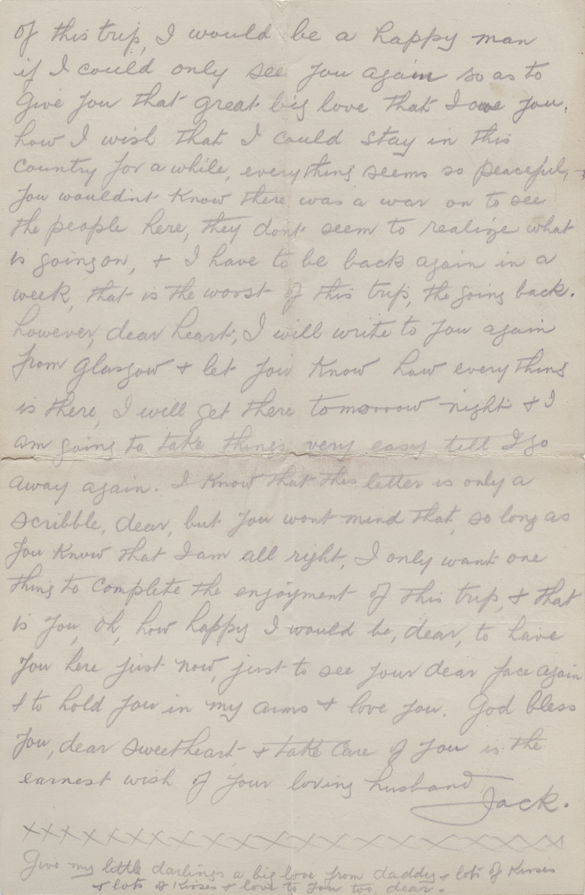 of this trip, I would be a happy man
if I could only see you again so as to
give you that great big love that I owe you.
how I wish that I could stay in this
country for a while, everything seems so peaceful, +
you wouldnt know there was a war on to see
the people here, they dont seem to realize what
is going on, + I have to be back again in a
week, that is the worst of this trip, the going back.
however, dear heart, I will write to you again
from Glasgow + let you know how everything
is there, I will get there tomorrow night + I
am going to take things very easy till I go
away again. I know that this letter is only a
scribble, dear, but you wont mind that, so long as
you know that I am all right, I only want one
thing to complete the enjoyment of this trip, + that
is you, oh, how happy I would be, dear, to have
you here just now, just to see your dear face again
+ to hold you in my arms + love you. God bless
you, dear sweetheart + take care of you is the
earnest wish of your loving husband
Jack.
xxxxxxxxxxxxxxxxxxxxxxxxxxx
Give my little darlings a big love from daddy + lots of kisses
+ lots of kisses + love to you too, dear.